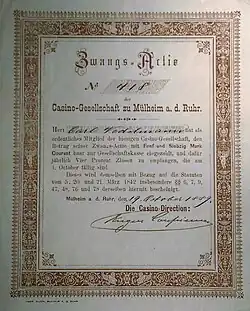 Zwangs-Actie
No 418
der
Casino-Gesellschaft zu Mülheim a. d. Ruhr.
Herr Carl ist als
ordentliches Mitglied der hiesigen Casino-Gesellschaft, den
Betrag seiner Zwangs-Actie mit Fünf und Siebzig Mark
Courant baar zur Gesellschaftskasse eingezahlt, und dafür
jährlich Vier Procent Zinsen zu empfangen, die am
1. October fällig sind.
Dieses wird demselben mit Bezug auf die Statuten
vom 5., 20. und 21. März 1842 insbesondere §§ 6, 7, 9,
47, 48, 76 und 78 derselben hierzu bescheinigt.
Mülheim a. d. Ruhr, den 19 October
Die Casino-Direction: